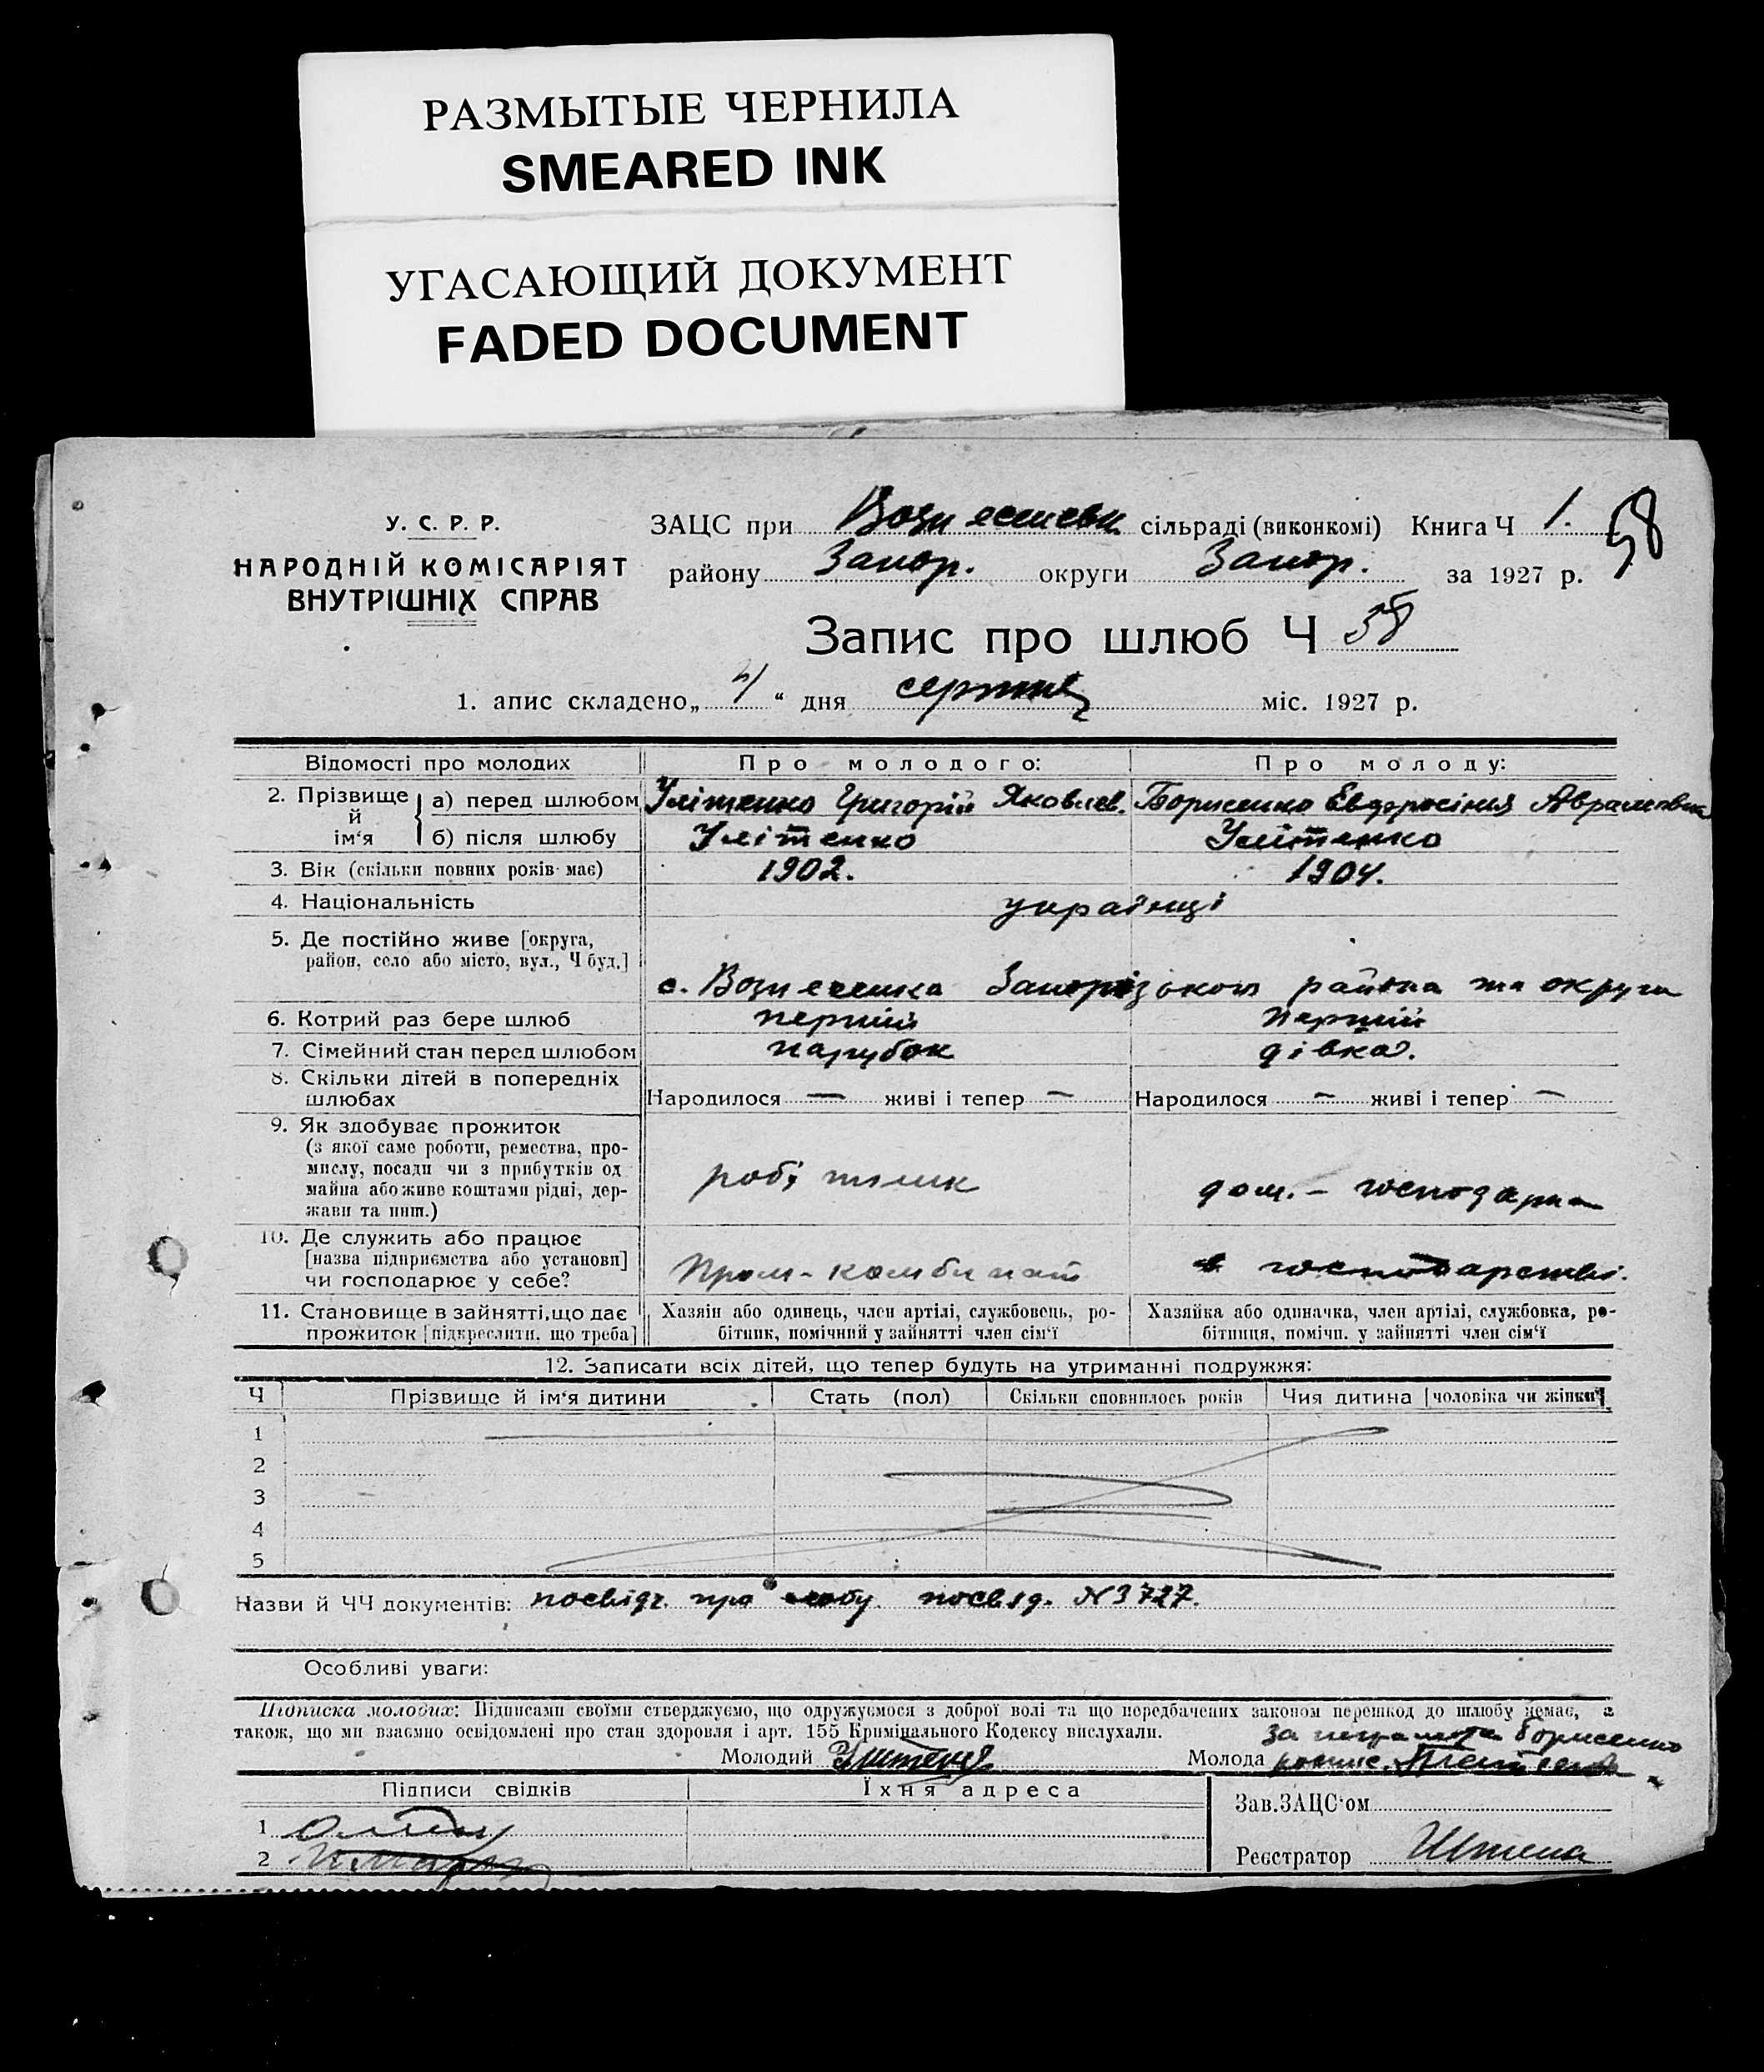 РАЗМЫТЫЕ ЧЕРНИЛА
SMEARED INK
УГАСАЮЩИЙ ДОКУМЕНТ
FADED DOCUMENT
У. С. Р. Р.
НАРОДНІЙ КОМІСАРІЯТ
ВНУТРІШНІХ СПРАВ
ЗАЦС при Вознесенськ. сільраді (виконкомі) Книга Ч 1. 58
району Запор. округи Запор. за 1927 р.
Запис про шлюб Ч 58
1. апис складено „ “ дня серпня міс. 1927 р.
Відомості про молодих Про молодого: Про молоду:
2. Прізвище й ім‘я а) перед шлюбом Улітенко Григорій Яковлев. Борисенко Евдоросінія Аврамовна
б) після шлюбу Улітенко Улітенко
3. Вік (скільки повних років має) 1902. 1904.
4. Національність українці
5. Де постійно живе [округа,
район, село або місто, вул., Ч буд.]
с. Вознесенка Запорізького района та округи
6. Котрий раз бере шлюб перший перший
7. Сімейний стан перед шлюбом парубок дівка.
8. Скільки дітей в попередніх
шлюбах Народилося — живі і тепер — Народилося — живі і тепер —
9. Як здобуває прожиток
(з якої саме роботи, ремества, про-
мислу, посади чи з прибутків од
майна або живе коштами рідні, дер-
жави та инш.)
робітник дом. - господарка
10. Де служить або працює
[назва підприємства або установи]
чи господарює у себе?
Пром-комбинат в господарстві.
11. Становище в зайнятті, що дає
прожиток [підкреслити, що треба]
Хазяін або одинець, член артілі, службовець, ро-
бітник, помічний у зайнятті член сім‘ї
Хазяйка або одиначка, член артілі, службовка, ро-
бітниця, помічн. у зайнятті член сім‘ї
12. Записати всіх дітей, що тепер будуть на утриманні подружжя:
Ч Прізвище й ім‘я дитини Стать (пол) Скільки сповнилось років Чия дитина [чоловіка чи жінки]
1
2
3
4
5
Назви й ЧЧ документів: посвідч. про особу посвід. N 3727.
Особливі уваги:
Підписка молодих: Підписами своїми стверджуємо, що одружуємося з доброї волі та що передбачених законом перешкод до шлюбу немає, а
також, що ми взаємно освідомлені про стан здоровля і арт. 155 Кримінального Кодексу вислухали.
Молодий Улітенко Молода за неграмотн Борисенко
роспис.
Підписи свідків Їхня адреса
Зав. ЗАЦС‘ом
1
2
Реєстратор